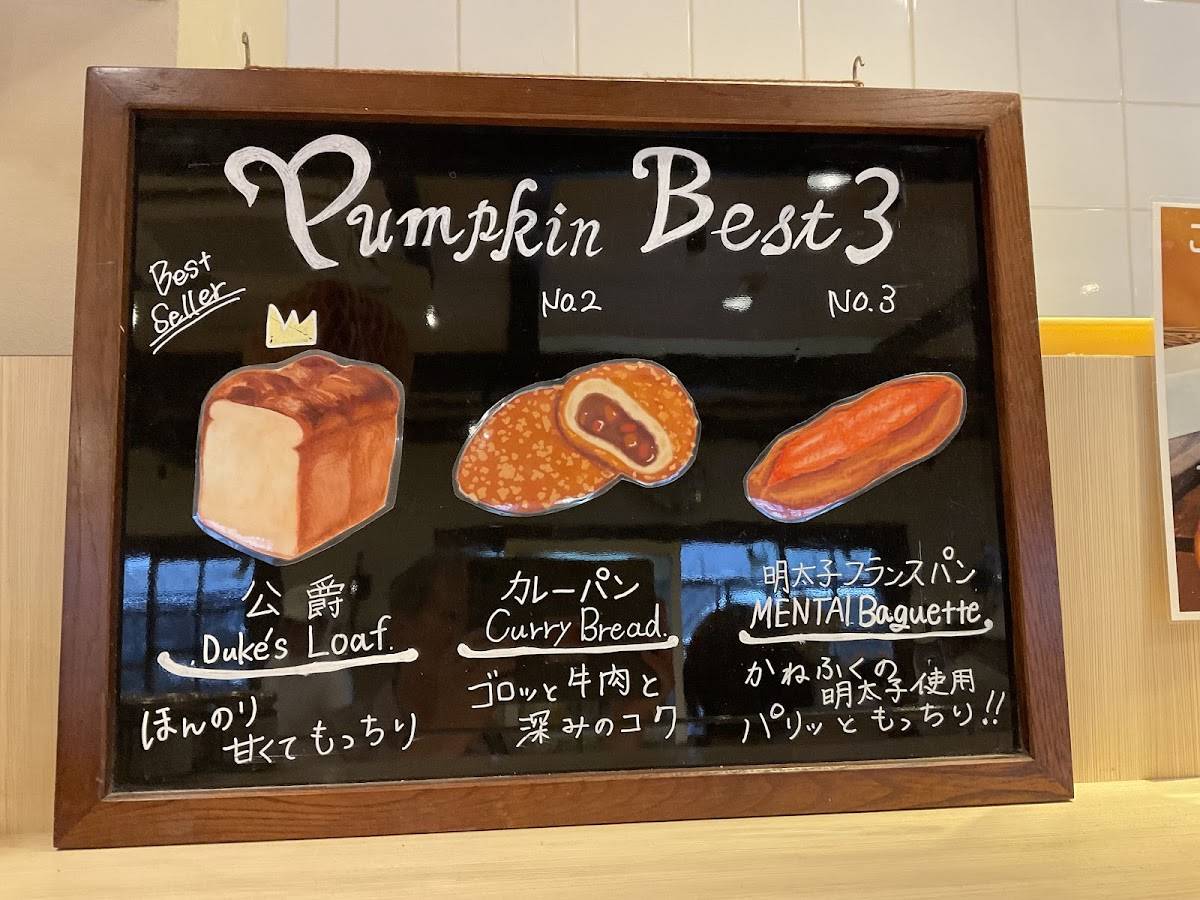 Pumpkin Best 3
Best
Seller
No.2
No.3
公爵
Duke's Loaf.
ほんのり
甘くてもっちり
カレーパン
Curry Bread.
ゴロッと牛肉と
深みのコク
明太子フランスパン
MENTAI Baguette
かねふくの
明太子使用
パリッともっちり!!